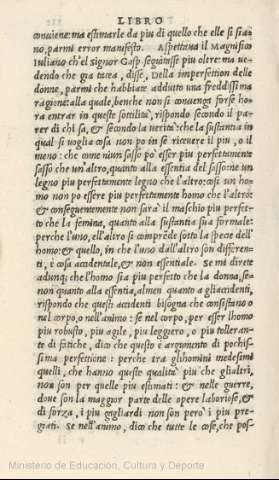 LIBRO
conviene: ma estimarle da piu di quello che elle si sia-
no, parmi error manifesto. Aspettaua il Magnifico
Iuliano ch'el signor Gasp. seguitasse piu oltre: ma ue-
dendo che gia tacea, disse, Della imperfettion delle
donne, parmi che habbiate addutto una freddissima
ragione: alla quale, benche non si conuenga forse ho-
ra entrar in queste sottilità, rispondo secondo il pa-
rer di chi sa, & secondo la uerità: che la sustantia in
qual si uoglia cosa non po in se riceuere il piu, o il
meno: che come niun sasso po esser piu perfettamente
sasso che un'altro, quanto alla essentia del sasso: ne un
legno piu perfettamente legno che l'altro: cosi un ho-
mo non po essere piu perfettamente homo che l'altro:
& conseguentemente non sarà il maschio piu perfet-
to che la femina, quanto alla sustantia sua formale:
perche l'uno, e l'altro si comprẽde sotto la specie dell'
homo: & quello, in che l'uno dall'altro son differen-
ti, è cosa accidentale, & non essentiale. Se mi direte
adunq; che l'homo sia piu perfetto che la donna, se-
non quanto alla essentia, almen quanto a gli accidenti,
rispondo che questi accidenti bisogna che consistano o
nel corpo, o nell'animo: se nel corpo, per esser lhomo
piu robusto, piu agile, piu leggiero, o piu tolleran-
te di fatiche, dico che questo è argumento di pochis-
sima perfettione: perche tra glihomini medesimi
quelli, che hanno queste qualità piu che glialtri,
non son per quelle piu estimati: & nelle guerre,
doue son la maggior parte delle opere laboriose, &
di forza, i piu gagliardi non son però i piu pre-
giati. Se nell'animo, dico che tutte le cose, che pos-
Ministerio de Educación, Cultura y Deporte